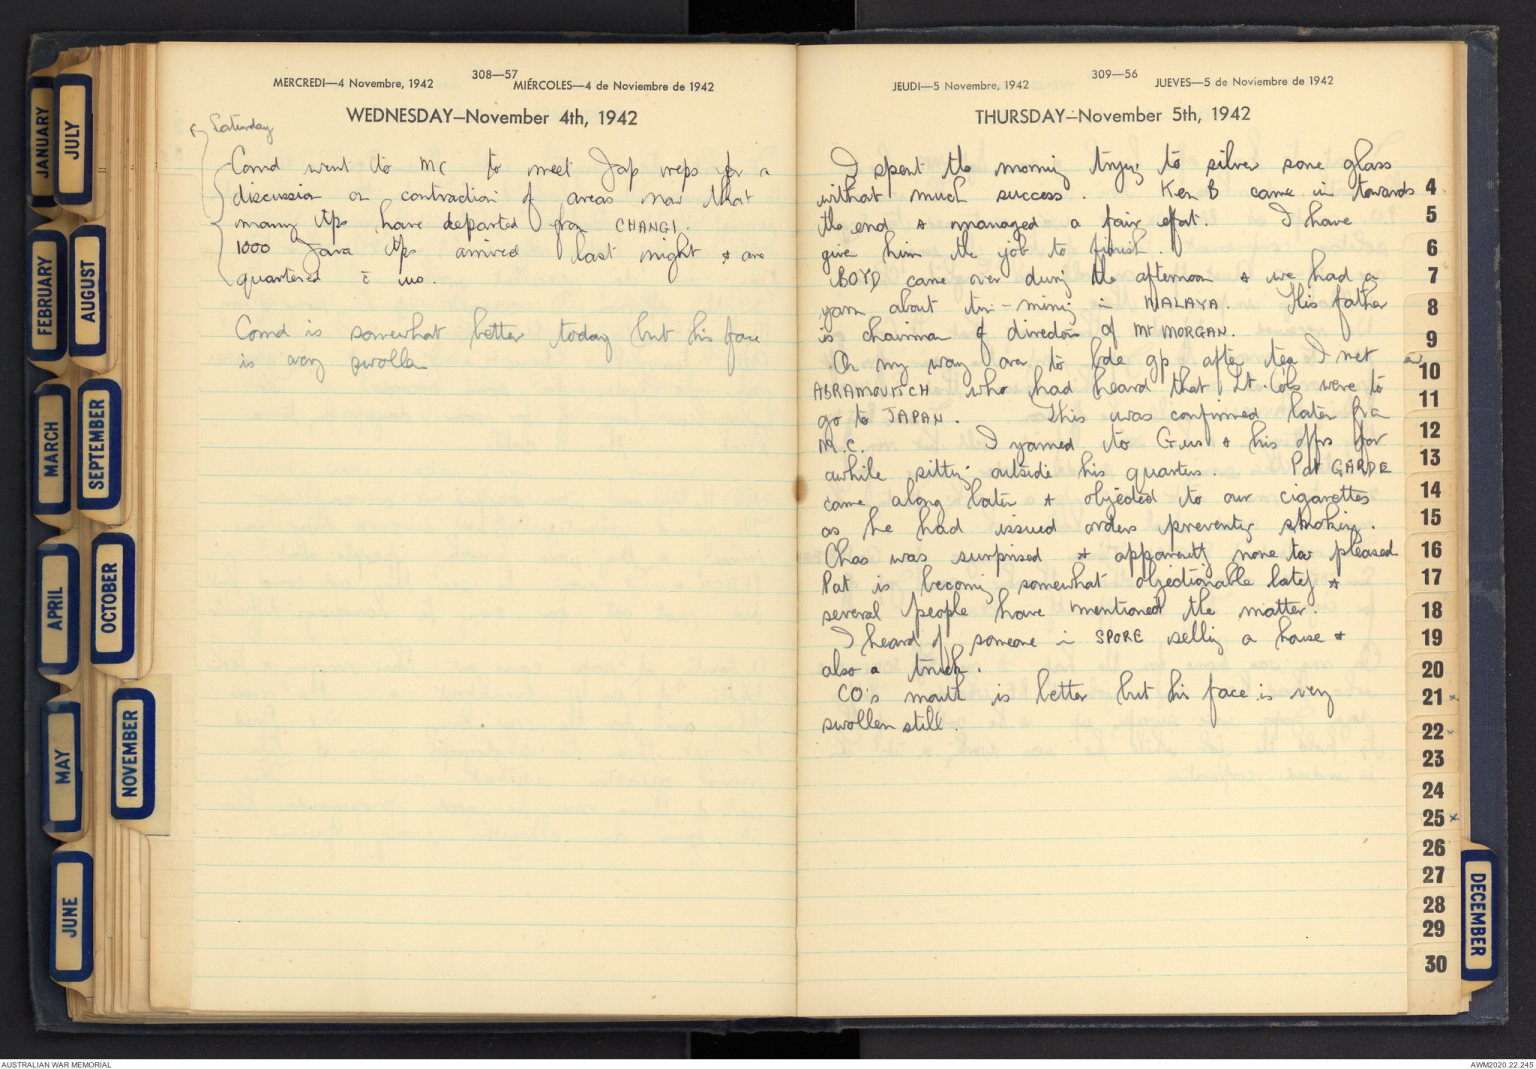 308—57
MERCREDI—4 Novembre, 1942 MIÉRCOLES—4 de Noviembre de 1942
WEDNESDAY—November 4th, 1942
Saturday
Comd went to MC to meet Jap reps for a
discussion on contraction of areas now that
many tps have departed from CHANGI.
1000 Java tps arrived last night & are
quartered c̄ us.
Comd is somewhat better today but his face
is very swollen
309—56
JEUDI—5 Novembre, 1942 JUEVES—5 de Noviembre de 1942
THURSDAY—November 5th, 1942
I spent the morning trying to silver some glass
without much success. Ken B came in towards
the end & managed a fair effort. I have
give him the job to finish.
BOYD came over during the afternoon & we had a
yarn about tin-mining in MALAYA. His father
is chairman of directors of Mt MORGAN.
On my way over to bde gp after tea I met
ABRAMOVITCH who had heard that Lt. Cols were to
go to JAPAN. This was confirmed later from
M.C. I yarned to Gus & his offrs for
awhile sitting outside his quarters. Pat GARDE
came along later & objected to our cigarettes
as he had issued orders preventing smoking.
Chas was surprised & apparently none too pleased
Pat is becoming somewhat objectionable lately &
several people have mentioned the matter.
I heard of someone in SPORE selling a house &
also a truck.
CO's mouth is better but his face is very
swollen still.
JANUARY
JULY
FEBRUARY
AUGUST
MARCH
SEPTEMBER
APRIL
OCTOBER
MAY
NOVEMBER
JUNE
DECEMBER
4
5
6
7
8
9
10
11
12
13
14
15
16
17
18
19
20
21
22
23
24
25
26
27
28
29
30
AUSTRALIAN WAR MEMORIAL
AWM2020.22.245